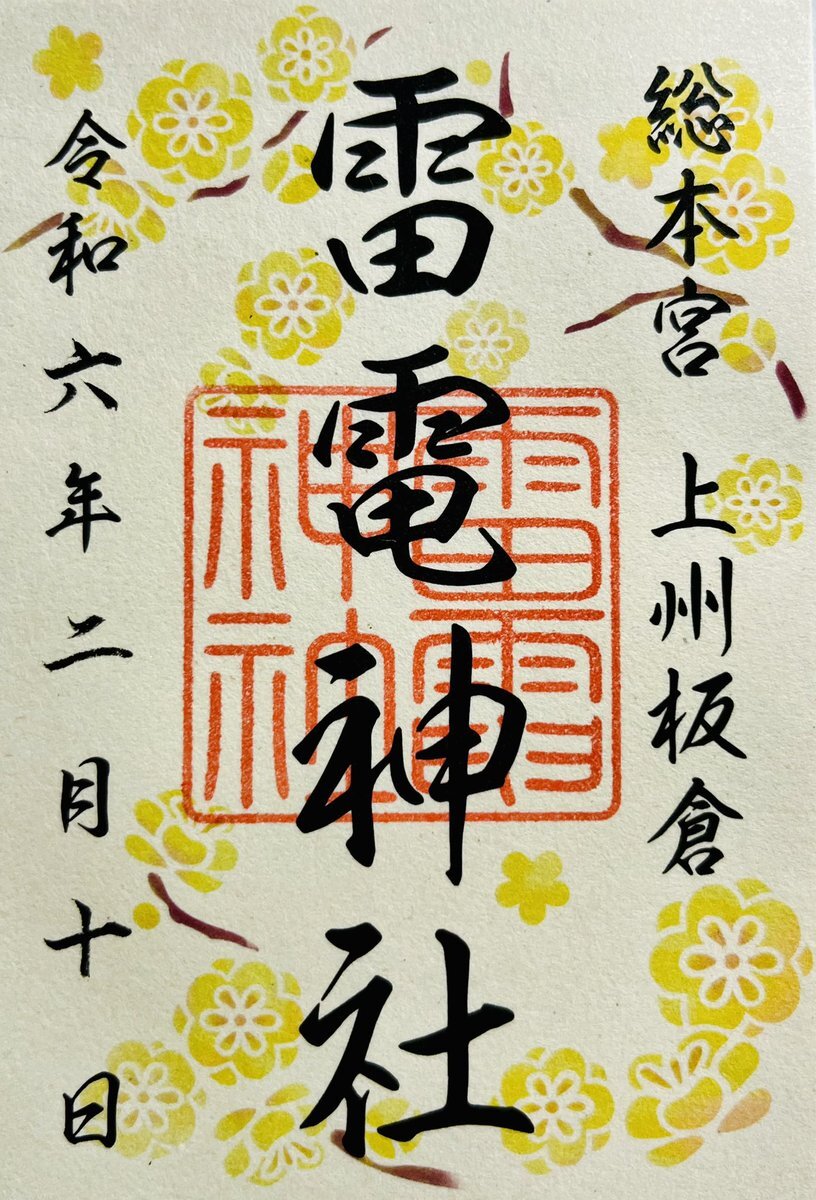 総本宮 上州板倉
雷電神社
雷電神社
令和六年二月十日